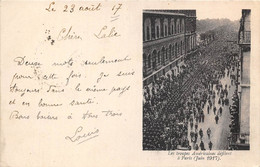 Le 23 août 17
Chère Lulu
Deux mots seulement
pour cette fois, je suis
toujours dans le même pays
et en bonne santé.
Bons baisers à tous trois
Louis
Les troupes Américaines défilent
à Paris (Juin 1917).